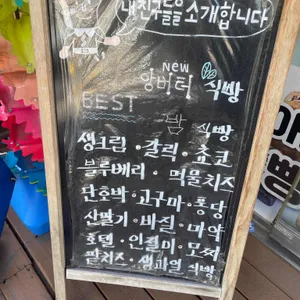 내친구들을소개합니다
NEW
앙버터 식빵
BEST
밤 식빵
생크림 · 갈릭 · 쵸코
블루베리 · 먹물치즈
단호박 · 고구마 · 통당
산딸기 · 바질 · 마약
호텔 · 인절미 · 모찌
팥치즈 · 생과일 식빵